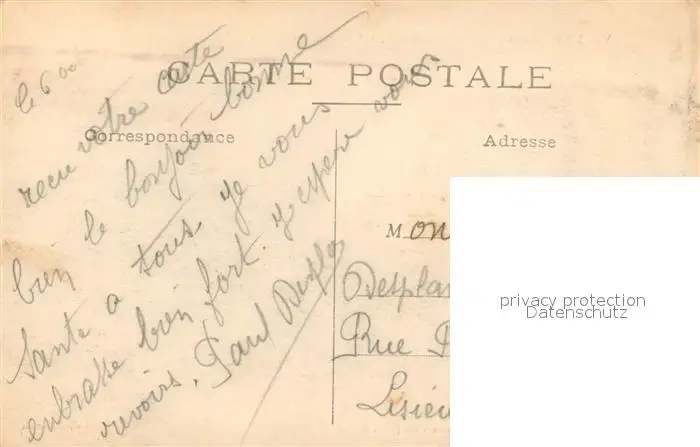 CARTE POSTALE
Correspondance
Adresse
le 6
recu votre carte
bien le bonjour bonne
Sante a tous je vous
enbrasse bien fort. j espere vous
revoirs. Paul
Mon
Rue
privacy protection
Datenschutz